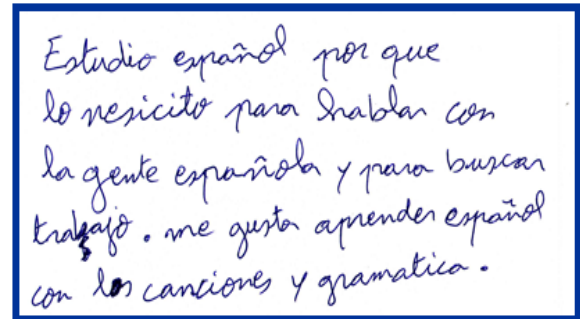 Estudio español por que
lo nesicito para hablar con
la gente española y para buscar
trabajo. me gusta aprender español
con las canciones y gramatica.